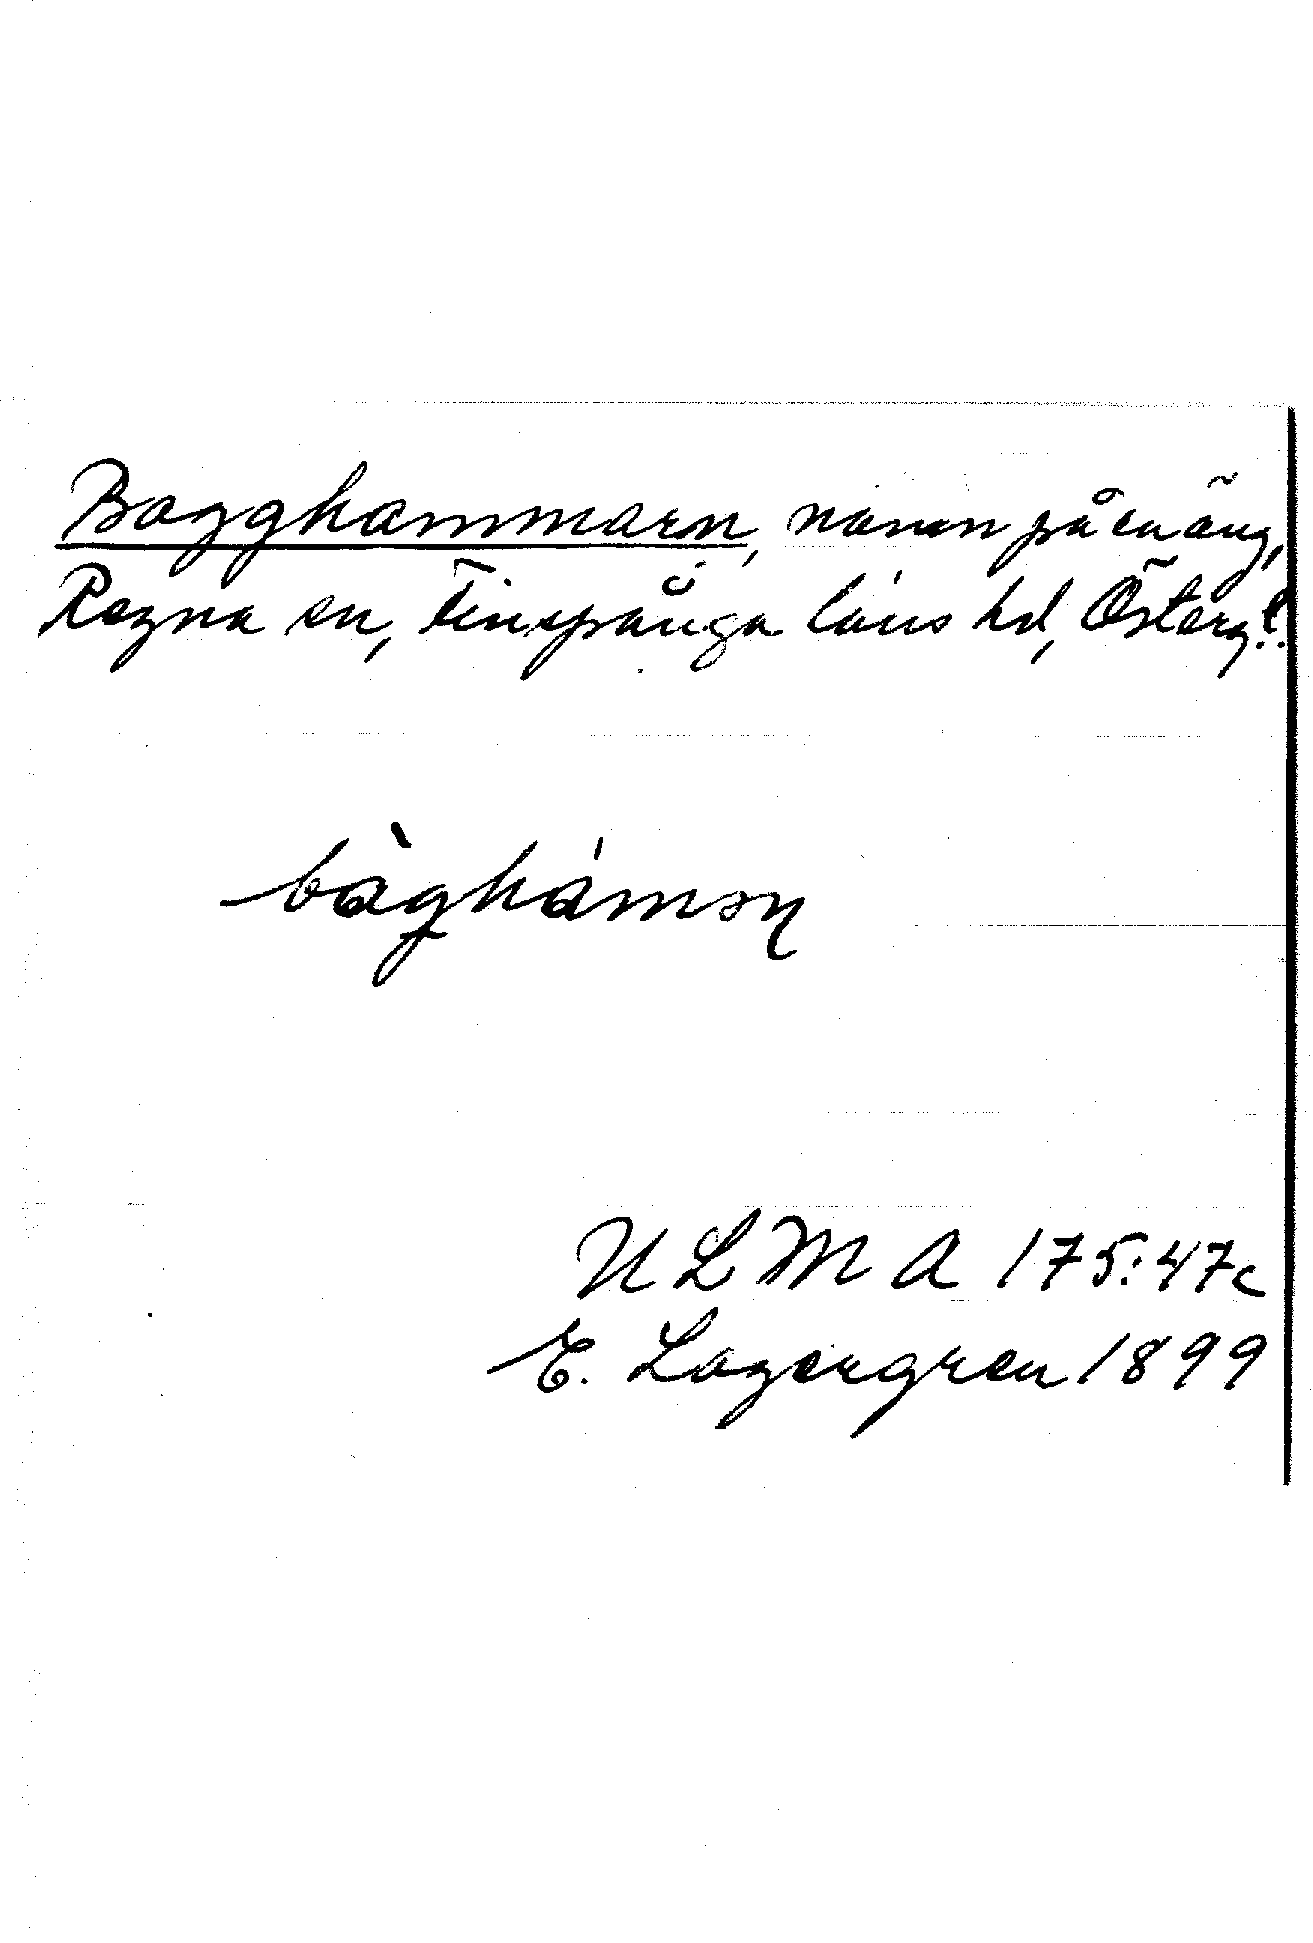 Bagghammarn, namn på en äng,
Regna sn, Finspånga läns hd, Österg!.
bàgháməɳ
ULMA 175:47c
E. Lagergren 1899